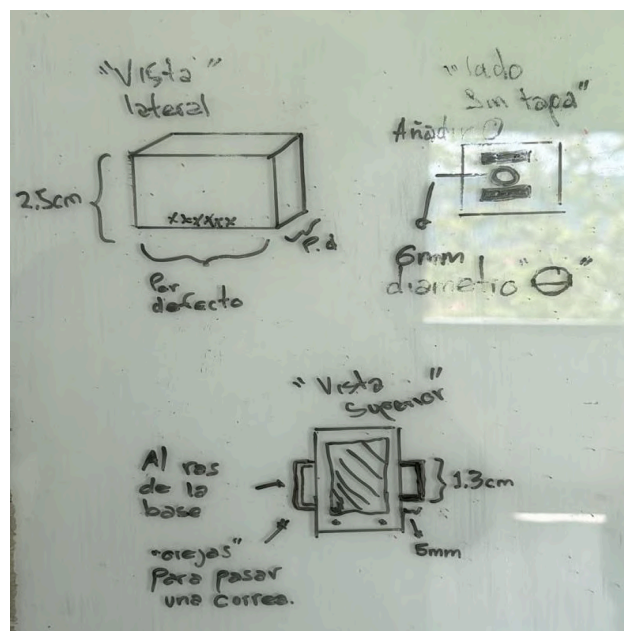 "Vista"
lateral
2.5cm
xxxxxx
P.d
Por
defecto
"lado
Sin tapa"
Añadir
6mm
diametro "⊖"
"Vista
Superior"
Al ras
de la
base
1.3cm
5mm
"orejas"
Para pasar
una correa.